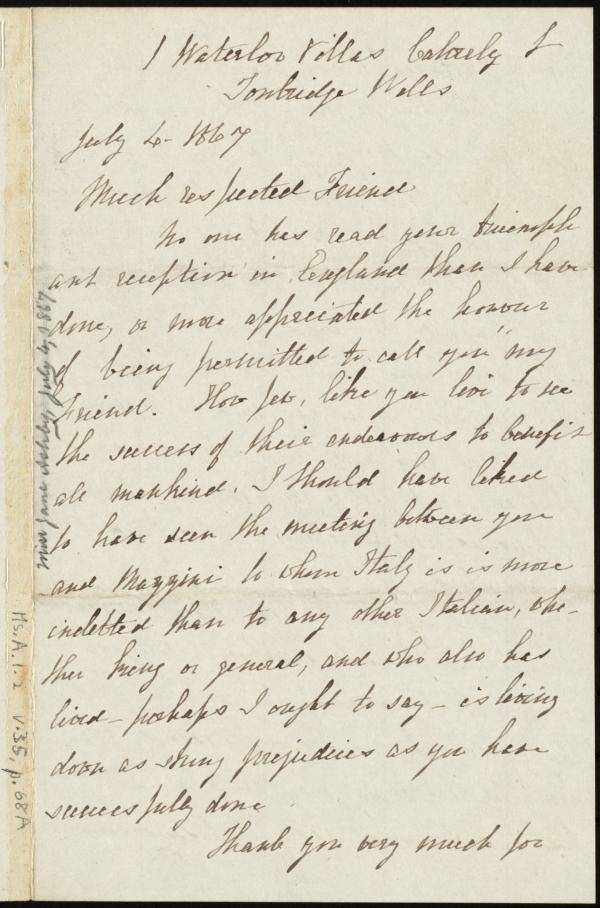 1 Waterloo Villas Calverly
Tonbridge Wells
July 4 - 1867
Much respected Friend
No one has read your triumph
ant reception in England than I have
done, or more appreciated the honour
of being permitted to call you "my
Friend. How few, like you live to see
the success of their endeavours to benefit
all mankind. I should have liked
to have seen the meeting between you
and Mazzini to whom Italy is is more
indebted than to any other Italian, whe-
ther king or general, and who also has
lived - perhaps I ought to say - is living
down as strong prejudices as you have
successfully done
Thank you very much for
Miss Jane Ashby, July 4, 1867
Ms. A. 1. 2 v. 35, p. 68A